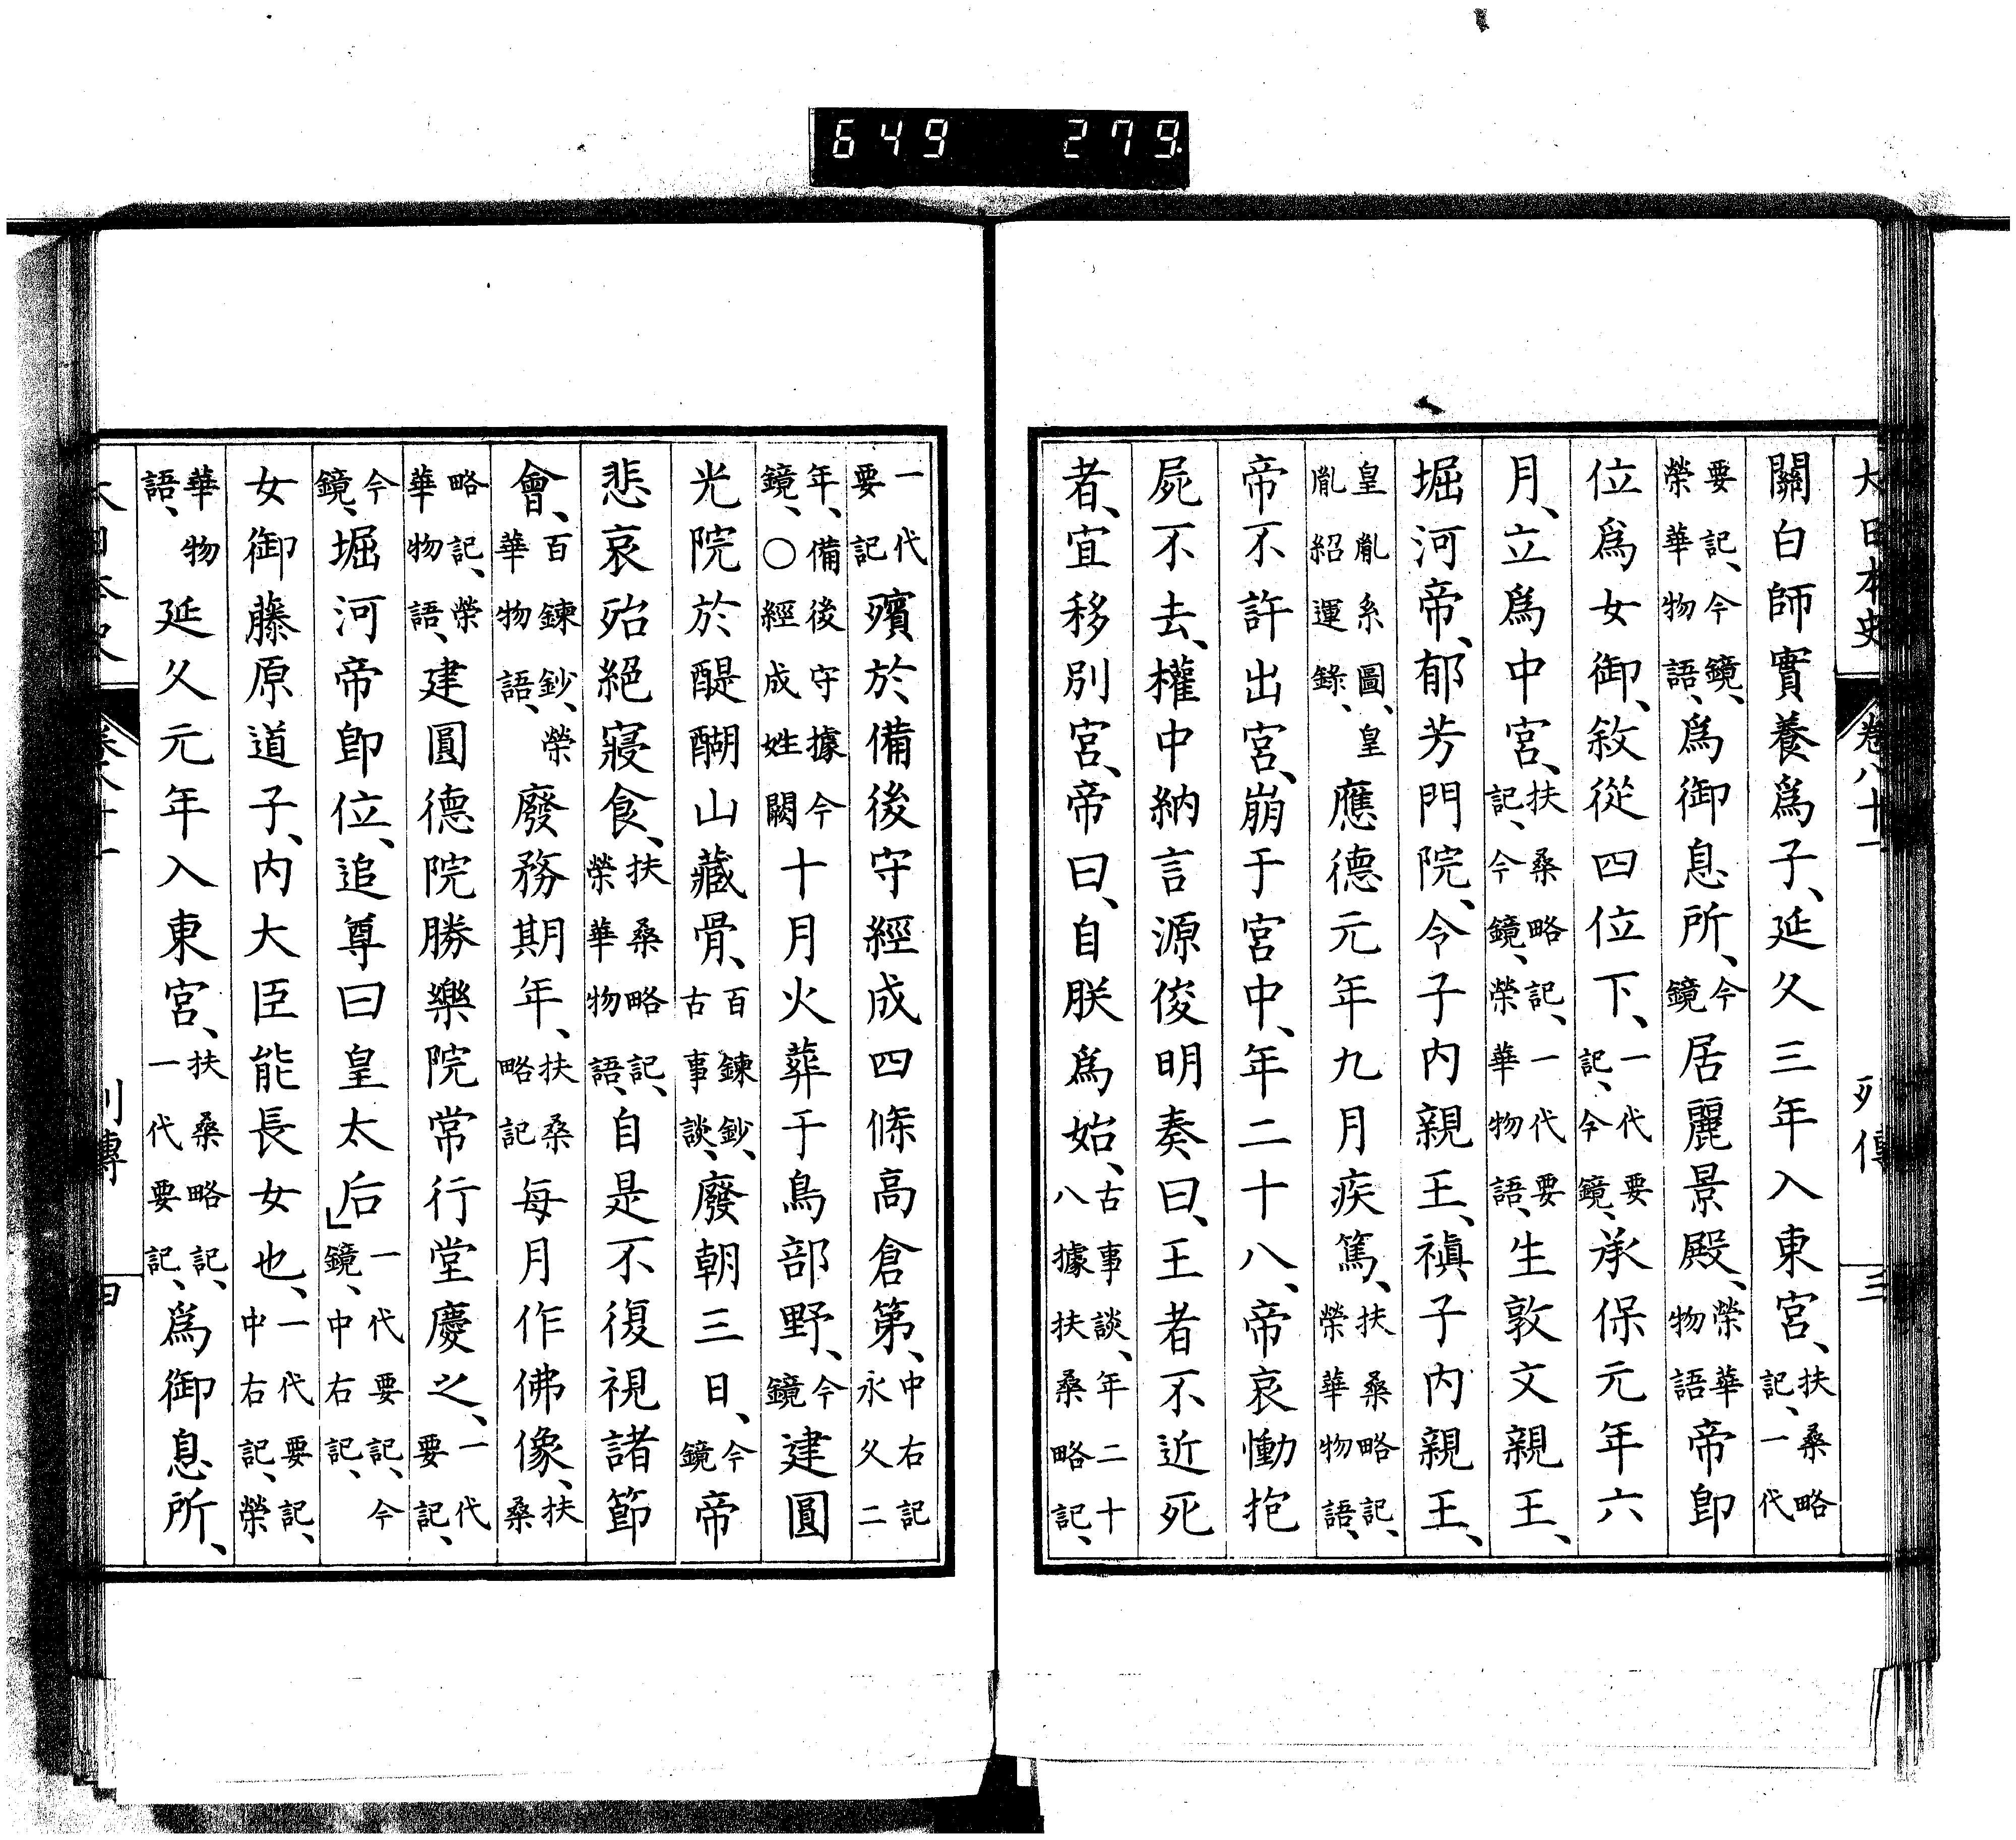 649 279.
大日本史 卷八十一 列傳 三
關白師實養爲子、延久三年入東宮、扶桑略記、一代
要記、今鏡、榮華物語、爲御息所、今鏡居麗景殿、榮華物語帝卽
位爲女御、敘從四位下、一代要記、今鏡、承保元年六
月、立爲中宮、扶桑略記、一代要記、今鏡、榮華物語、生敦文親王、
堀河帝、郁芳門院、令子內親王、禛子內親王、
皇胤系圖、皇胤紹運錄、應德元年九月疾篤、扶桑略記、榮華物語、
帝不許出宮、崩于宮中、年二十八、帝哀慟抱
屍不去、權中納言源俊明奏曰、王者不近死
者、宜移別宮、帝曰、自朕爲始、古事談、年二十八據扶桑略記、
一代要記殯於備後守經成四條高倉第、中右記永久二
年、備後守據今鏡、〇經成姓闕十月火葬于鳥部野、今鏡建圓
光院於醍醐山藏骨、百鍊鈔、古事談、廢朝三日、今鏡帝
悲哀殆絕寢食、扶桑略記、榮華物語、自是不復視諸節
會、百鍊鈔、榮華物語、廢務期年、扶桑略記每月作佛像、扶桑
略記、榮華物語、建圓德院勝樂院常行堂慶之、一代要記、
今鏡、堀河帝卽位、追尊曰皇太后」一代要記、今鏡、中右記、
女御藤原道子、內大臣能長女也、一代要記、中右記、榮
華物語、延久元年入東宮、扶桑略記、一代要記、爲御息所、